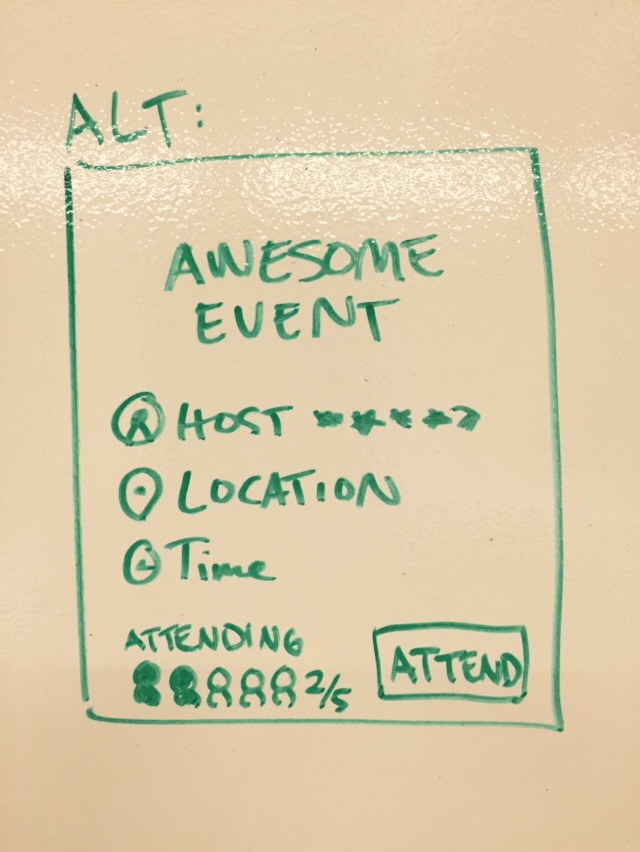 ALT:
AWESOME
EVENT
HOST
LOCATION
Time
ATTENDING
2/5
ATTEND